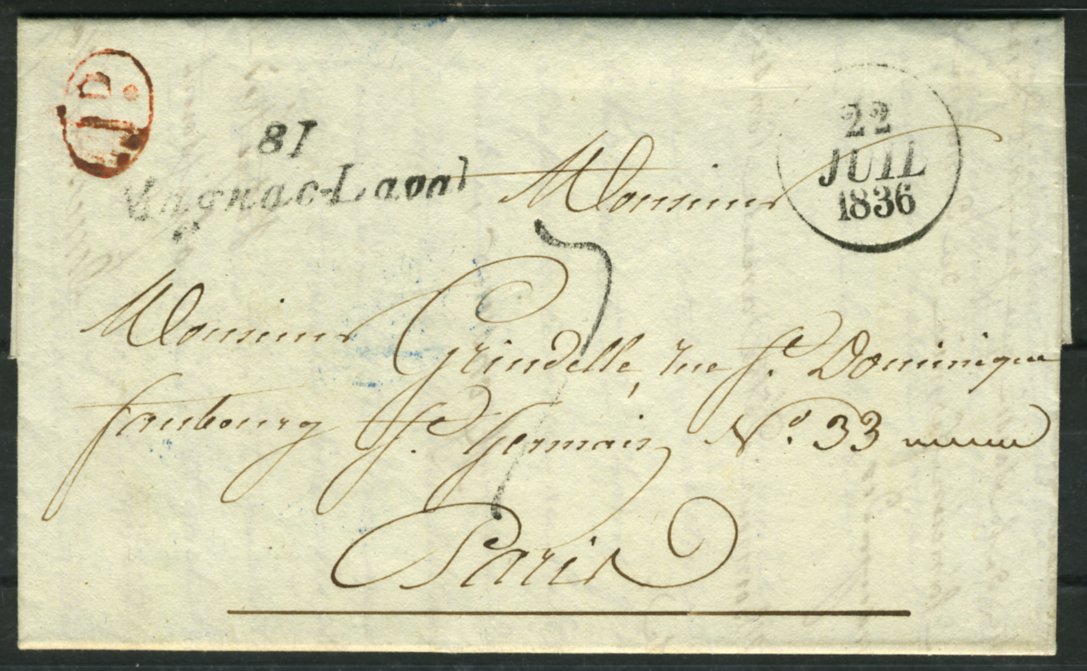 1D.
81
Magnac-Laval
22
JUIL
1836
Monsieur
Monsieur Grindelle, rue St. Dominique
faubourg St. Germain No. 33
Paris
7